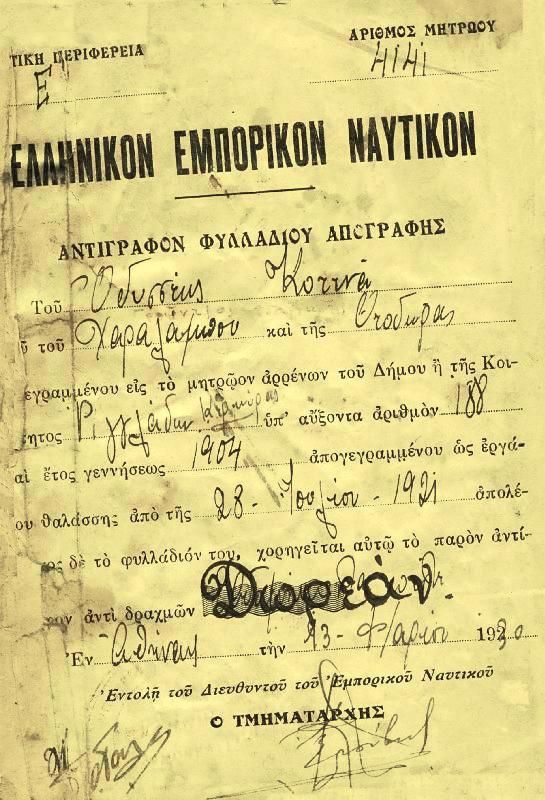 ΤΙΚΗ ΠΕΡΙΦΕΡΕΙΑ
Ε
ΑΡΙΘΜΟΣ ΜΗΤΡΩΟΥ
4141
ΕΛΛΗΝΙΚΟΝ ΕΜΠΟΡΙΚΟΝ ΝΑΥΤΙΚΟΝ
ΑΝΤΙΓΡΑΦΟΝ ΦΥΛΛΑΔΙΟΥ ΑΠΟΓΡΑΦΗΣ
Τοῦ Ὀδυσσέως Κοτινᾶ
ῦ τοῦ Χαραλάμπου καὶ τῆς Θεοδώρας
εγραμμένου εἰς τὸ μητρῷον ἀρρένων τοῦ Δήμου ἢ τῆς Κοι-
τητος Κερκύρας ὑπ' αὔξοντα ἀριθμὸν 188
αὶ ἔτος γεννήσεως 1904 ἀπογεγραμμένου ὡς ἐργά-
ου θαλάσσης ἀπὸ τῆς 28 - Ἰουλίου - 1921 ἀπολέ-
ος δὲ τὸ φυλλάδιόν του, χορηγεῖται αὐτῷ τὸ παρὸν ἀντί-
φον ἀντὶ δραχμῶν Δωρεάν.
Ἐν Ἀθήναις τὴν 13 - Φ/αρίου 1930
Ἐντολῇ τοῦ Διευθυντοῦ τοῦ Ἐμπορικοῦ Ναυτικοῦ
Ο ΤΜΗΜΑΤΑΡΧΗΣ